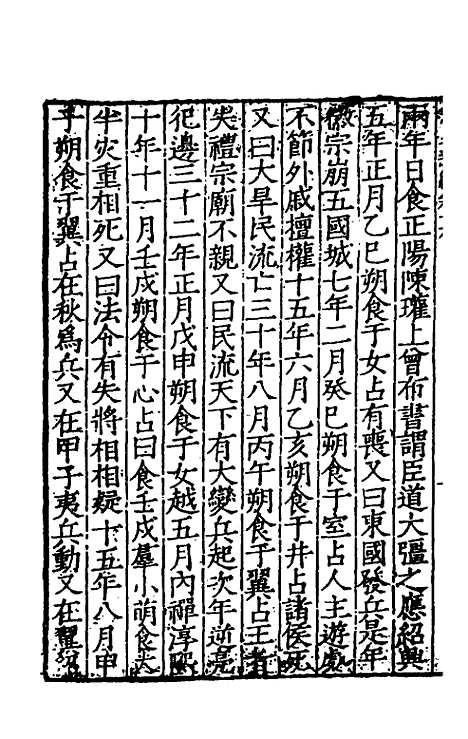 兩年日食正陽陳瓘上曾布書謂臣道大彊之應紹興
五年正月乙巳朔食于女占有喪又曰東國發兵是年
徽宗崩五國城七年二月癸巳朔食于室占人主遊戲
不節外戚擅權十五年六月乙亥朔食于井占諸侯死
又曰大旱民流亡三十年八月丙午朔食于翼占王者
失禮宗廟不親又曰民流天下有大變兵起次年逆亮
犯邊三十二年正月戊申朔食于女越五月內禪淳熙
十年十一月壬戌朔食于心占曰食壬戌羣小萌食大
半災重相死又曰法令有失將相相疑十五年八月甲
子朔食于翼占在秋爲兵又在甲子夷兵動又在翼